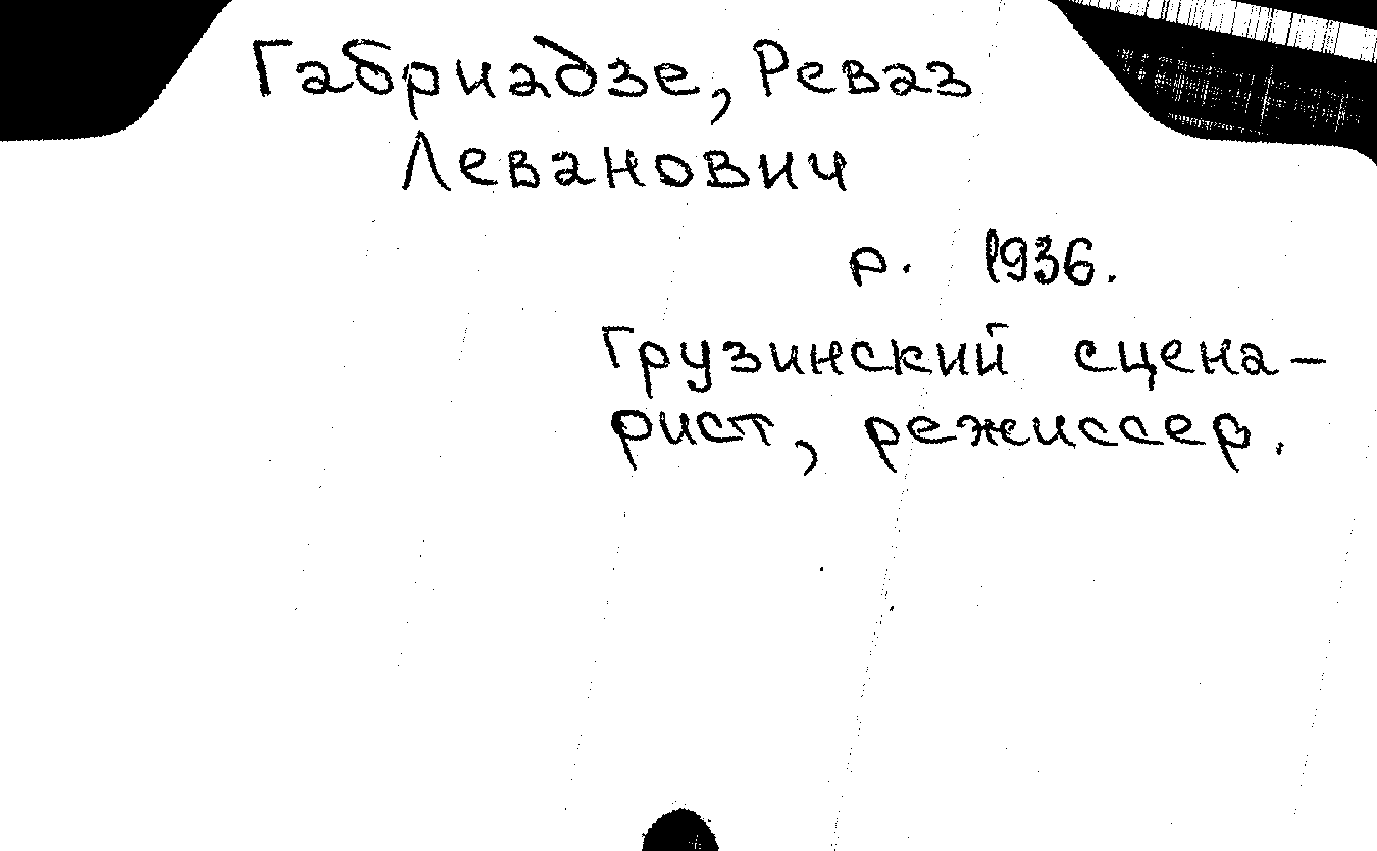 Габриадзе, Реваз
Леванович
р. 1936.
Грузинский сцена-
рист, режиссер.